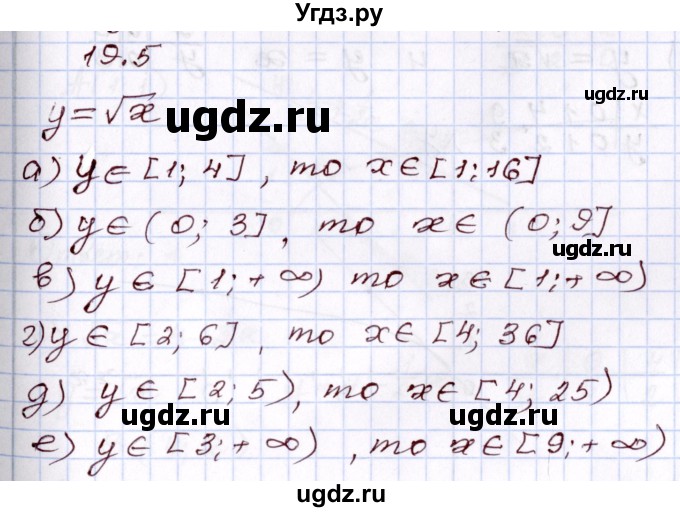 Угдз.ру
19.5
y = √x
ugdz.ru
а) y ∈ [1; 4] , то x ∈ [1; 16]
ugdz.ru
б) y ∈ (0; 3] , то x ∈ (0; 9]
ugdz.ru
в) y ∈ [1; +∞) то x ∈ [1; +∞)
г) y ∈ [2; 6] , то x ∈ [4; 36]
ugdz.ru
д) y ∈ [2; 5) , то x ∈ [4; 25)
ugdz.ru
ugdz.ru
е) y ∈ [3; +∞) , то x ∈ [9; +∞)
ugdz.ru